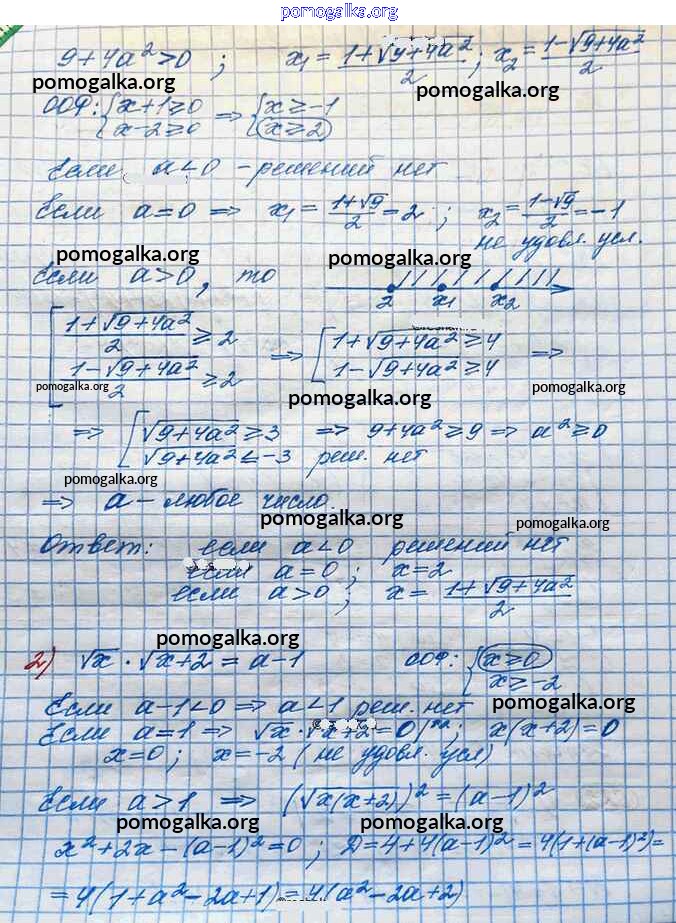 pomogalka.org
9+4a²>0 ; x₁ = (1+√(9+4a²))/2 ; x₂ = (1-√(9+4a²))/2
pomogalka.org pomogalka.org
ООФ: {x+1≥0 x-2≥0 => {x≥-1 x≥2
Если a<0 - решений нет
Если a=0 => x₁ = (1+√9)/2 = 2 ; x₂ = (1-√9)/2 = -1
не удовл. усл.
pomogalka.org pomogalka.org
Если a>0, то 2 x₁ x₂
[(1+√(9+4a²))/2 ≥ 2 (1-√(9+4a²))/2 ≥ 2 => [1+√(9+4a²) ≥ 4 1-√(9+4a²) ≥ 4 =>
pomogalka.org pomogalka.org pomogalka.org
=> [√(9+4a²) ≥ 3 => 9+4a² ≥ 9 => a² ≥ 0
√(9+4a²) ≤ -3 реш. нет
pomogalka.org
=> a - любое число.
pomogalka.org pomogalka.org
Ответ: если a<0 решений нет
если a=0 ; x=2
если a>0 ; x = (1+√(9+4a²))/2
pomogalka.org
2) √x · √x+2 = a-1 ООФ: {x≥0 x≥-2
pomogalka.org
Если a-1<0 => a<1 реш. нет
Если a=1 => √x · √x+2 = 0 ; x(x+2)=0
x=0 ; x=-2 (не удовл. усл)
Если a>1 => (√x(x+2))² = (a-1)²
pomogalka.org pomogalka.org
x²+2x-(a-1)²=0 ; D=4+4(a-1)² = 4(1+(a-1)²)=
=4(1+a²-2a+1)=4(a²-2a+2)